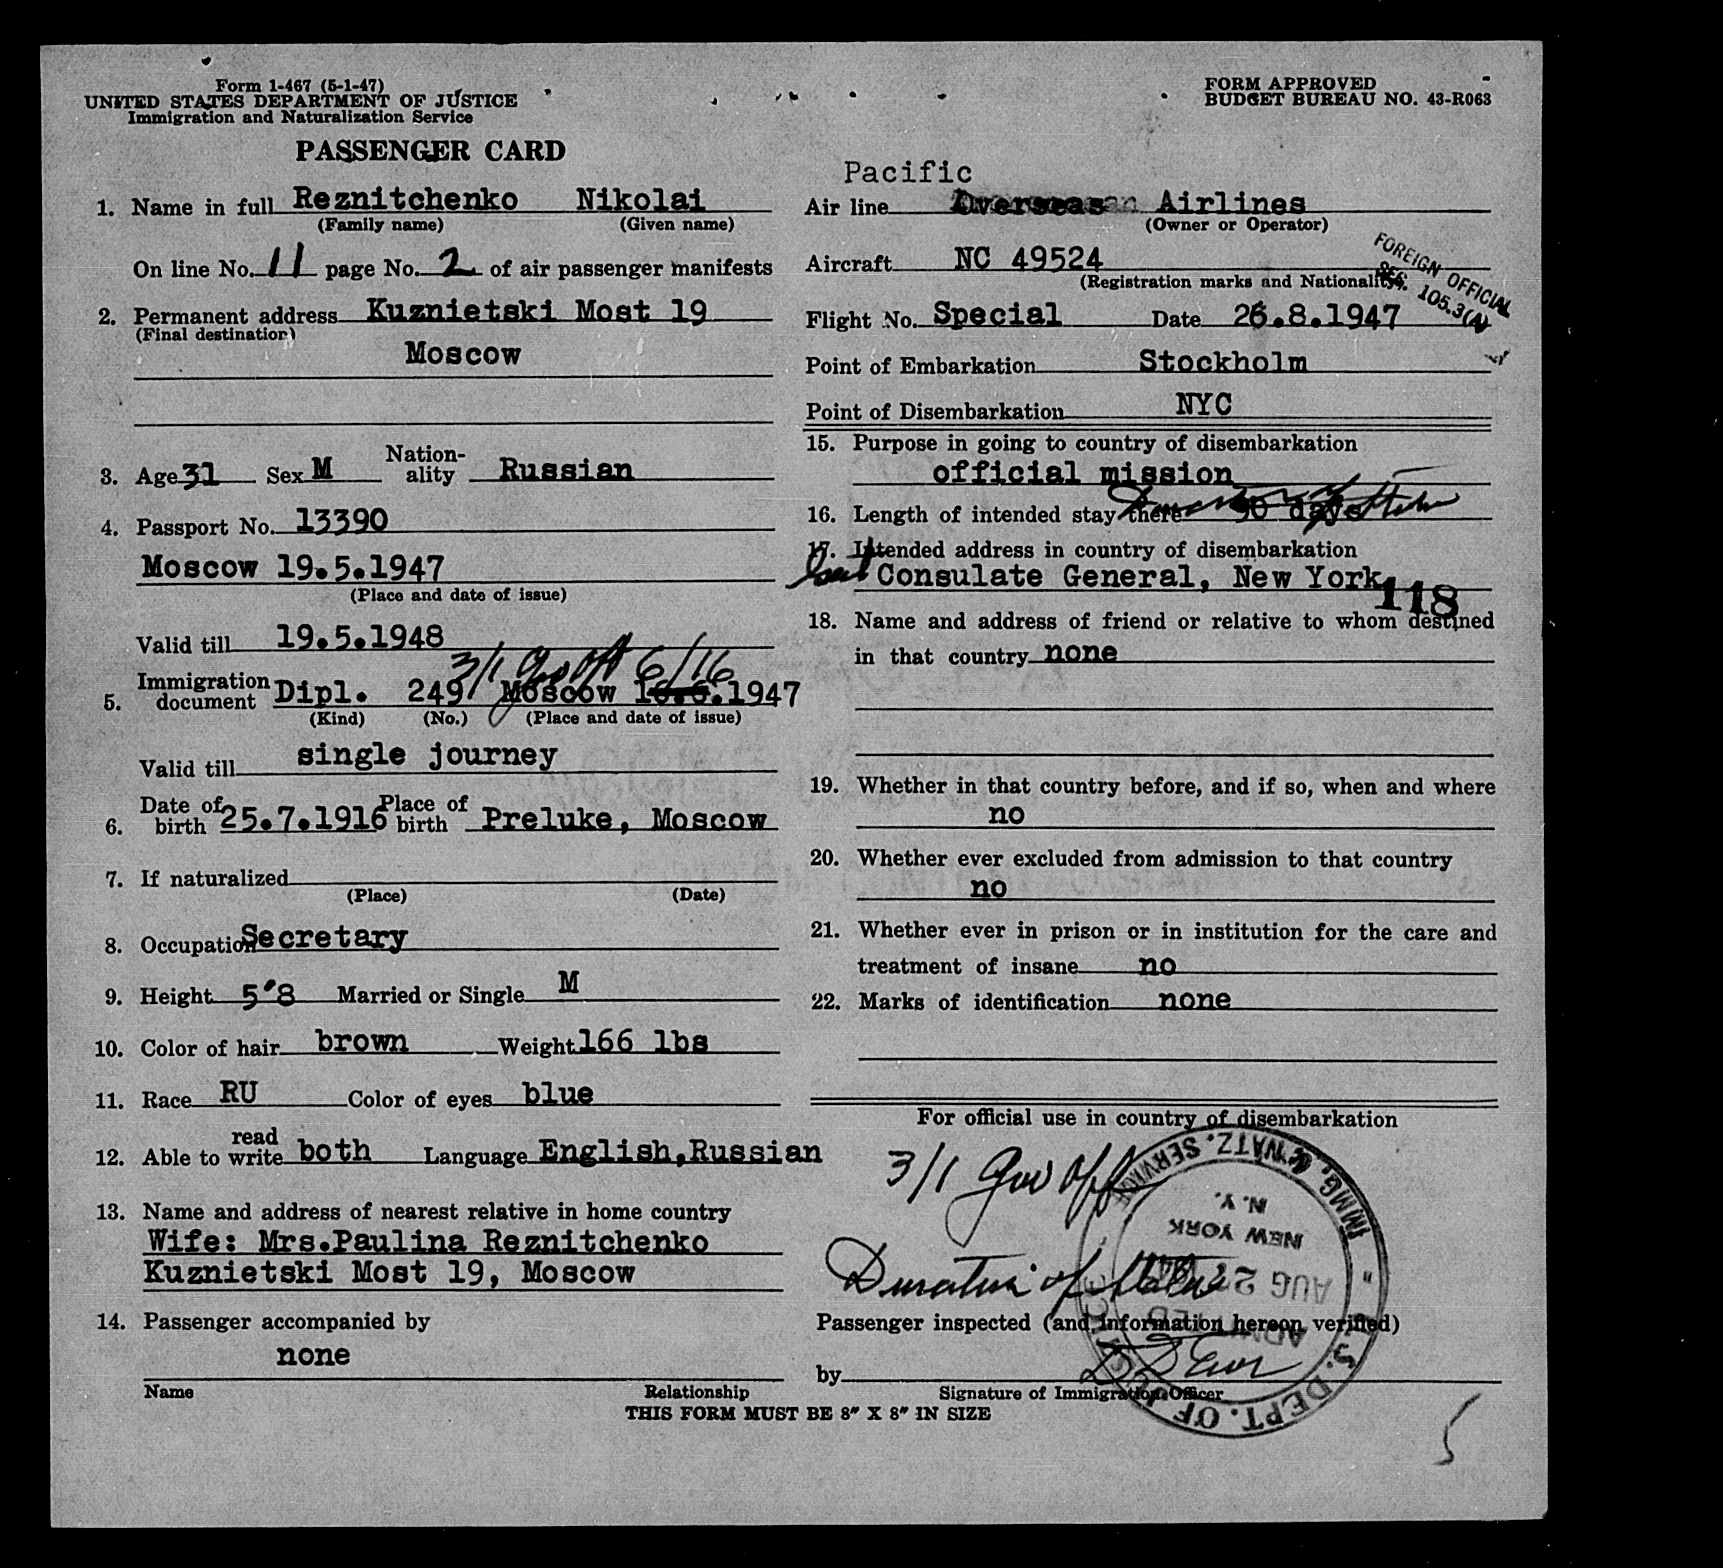 Form 1-467 (5-1-47)
UNITED STATES DEPARTMENT OF JUSTICE
Immigration and Naturalization Service
PASSENGER CARD
FORM APPROVED
BUDGET BUREAU NO. 43-R063
1. Name in full Reznitchenko Nikolai
(Family name) (Given name)
On line No. 11 page No. 2 of air passenger manifests
2. Permanent address Kuznietski Most 19
(Final destination)
Moscow
3. Age 31 Sex M Nation-ality Russian
4. Passport No. 13390
Moscow 19.5.1947
(Place and date of issue)
Valid till 19.5.1948
3/1 Gov Off 6/16
5. Immigration document Dipl. 249 Moscow 16.6.1947
(Kind) (No.) (Place and date of issue)
Valid till single journey
6. Date of birth 25.7.1916 Place of birth Preluke, Moscow
7. If naturalized
(Place) (Date)
8. Occupation Secretary
9. Height 5'8 Married or Single M
10. Color of hair brown Weight 166 lbs
11. Race RU Color of eyes blue
12. Able to read write both Language English,Russian
13. Name and address of nearest relative in home country
Wife: Mrs.Paulina Reznitchenko
Kuznietski Most 19, Moscow
14. Passenger accompanied by
none
Name Relationship
THIS FORM MUST BE 8" X 8" IN SIZE
Pacific
Air line Overseas Airlines
(Owner or Operator)
Aircraft NC 49524
(Registration marks and Nationality)
FOREIGN OFFICIAL
SEC. 105.3(A)
Flight No. Special Date 26.8.1947
Point of Embarkation Stockholm
Point of Disembarkation NYC
15. Purpose in going to country of disembarkation
official mission
16. Length of intended stay there 90 days Duration of Status
17. Intended address in country of disembarkation
Consulate General, New York
118
18. Name and address of friend or relative to whom destined
in that country none
19. Whether in that country before, and if so, when and where
no
20. Whether ever excluded from admission to that country
no
21. Whether ever in prison or in institution for the care and
treatment of insane no
22. Marks of identification none
For official use in country of disembarkation
3/1 Gov Off
Duration of Status
Passenger inspected (and information hereon verified)
by
Signature of Immigration Officer
U.S. DEPT. OF JUSTICE
IMMG. & NATZ. SERVICE
NEW YORK
N.Y.
ADMITTED
AUG